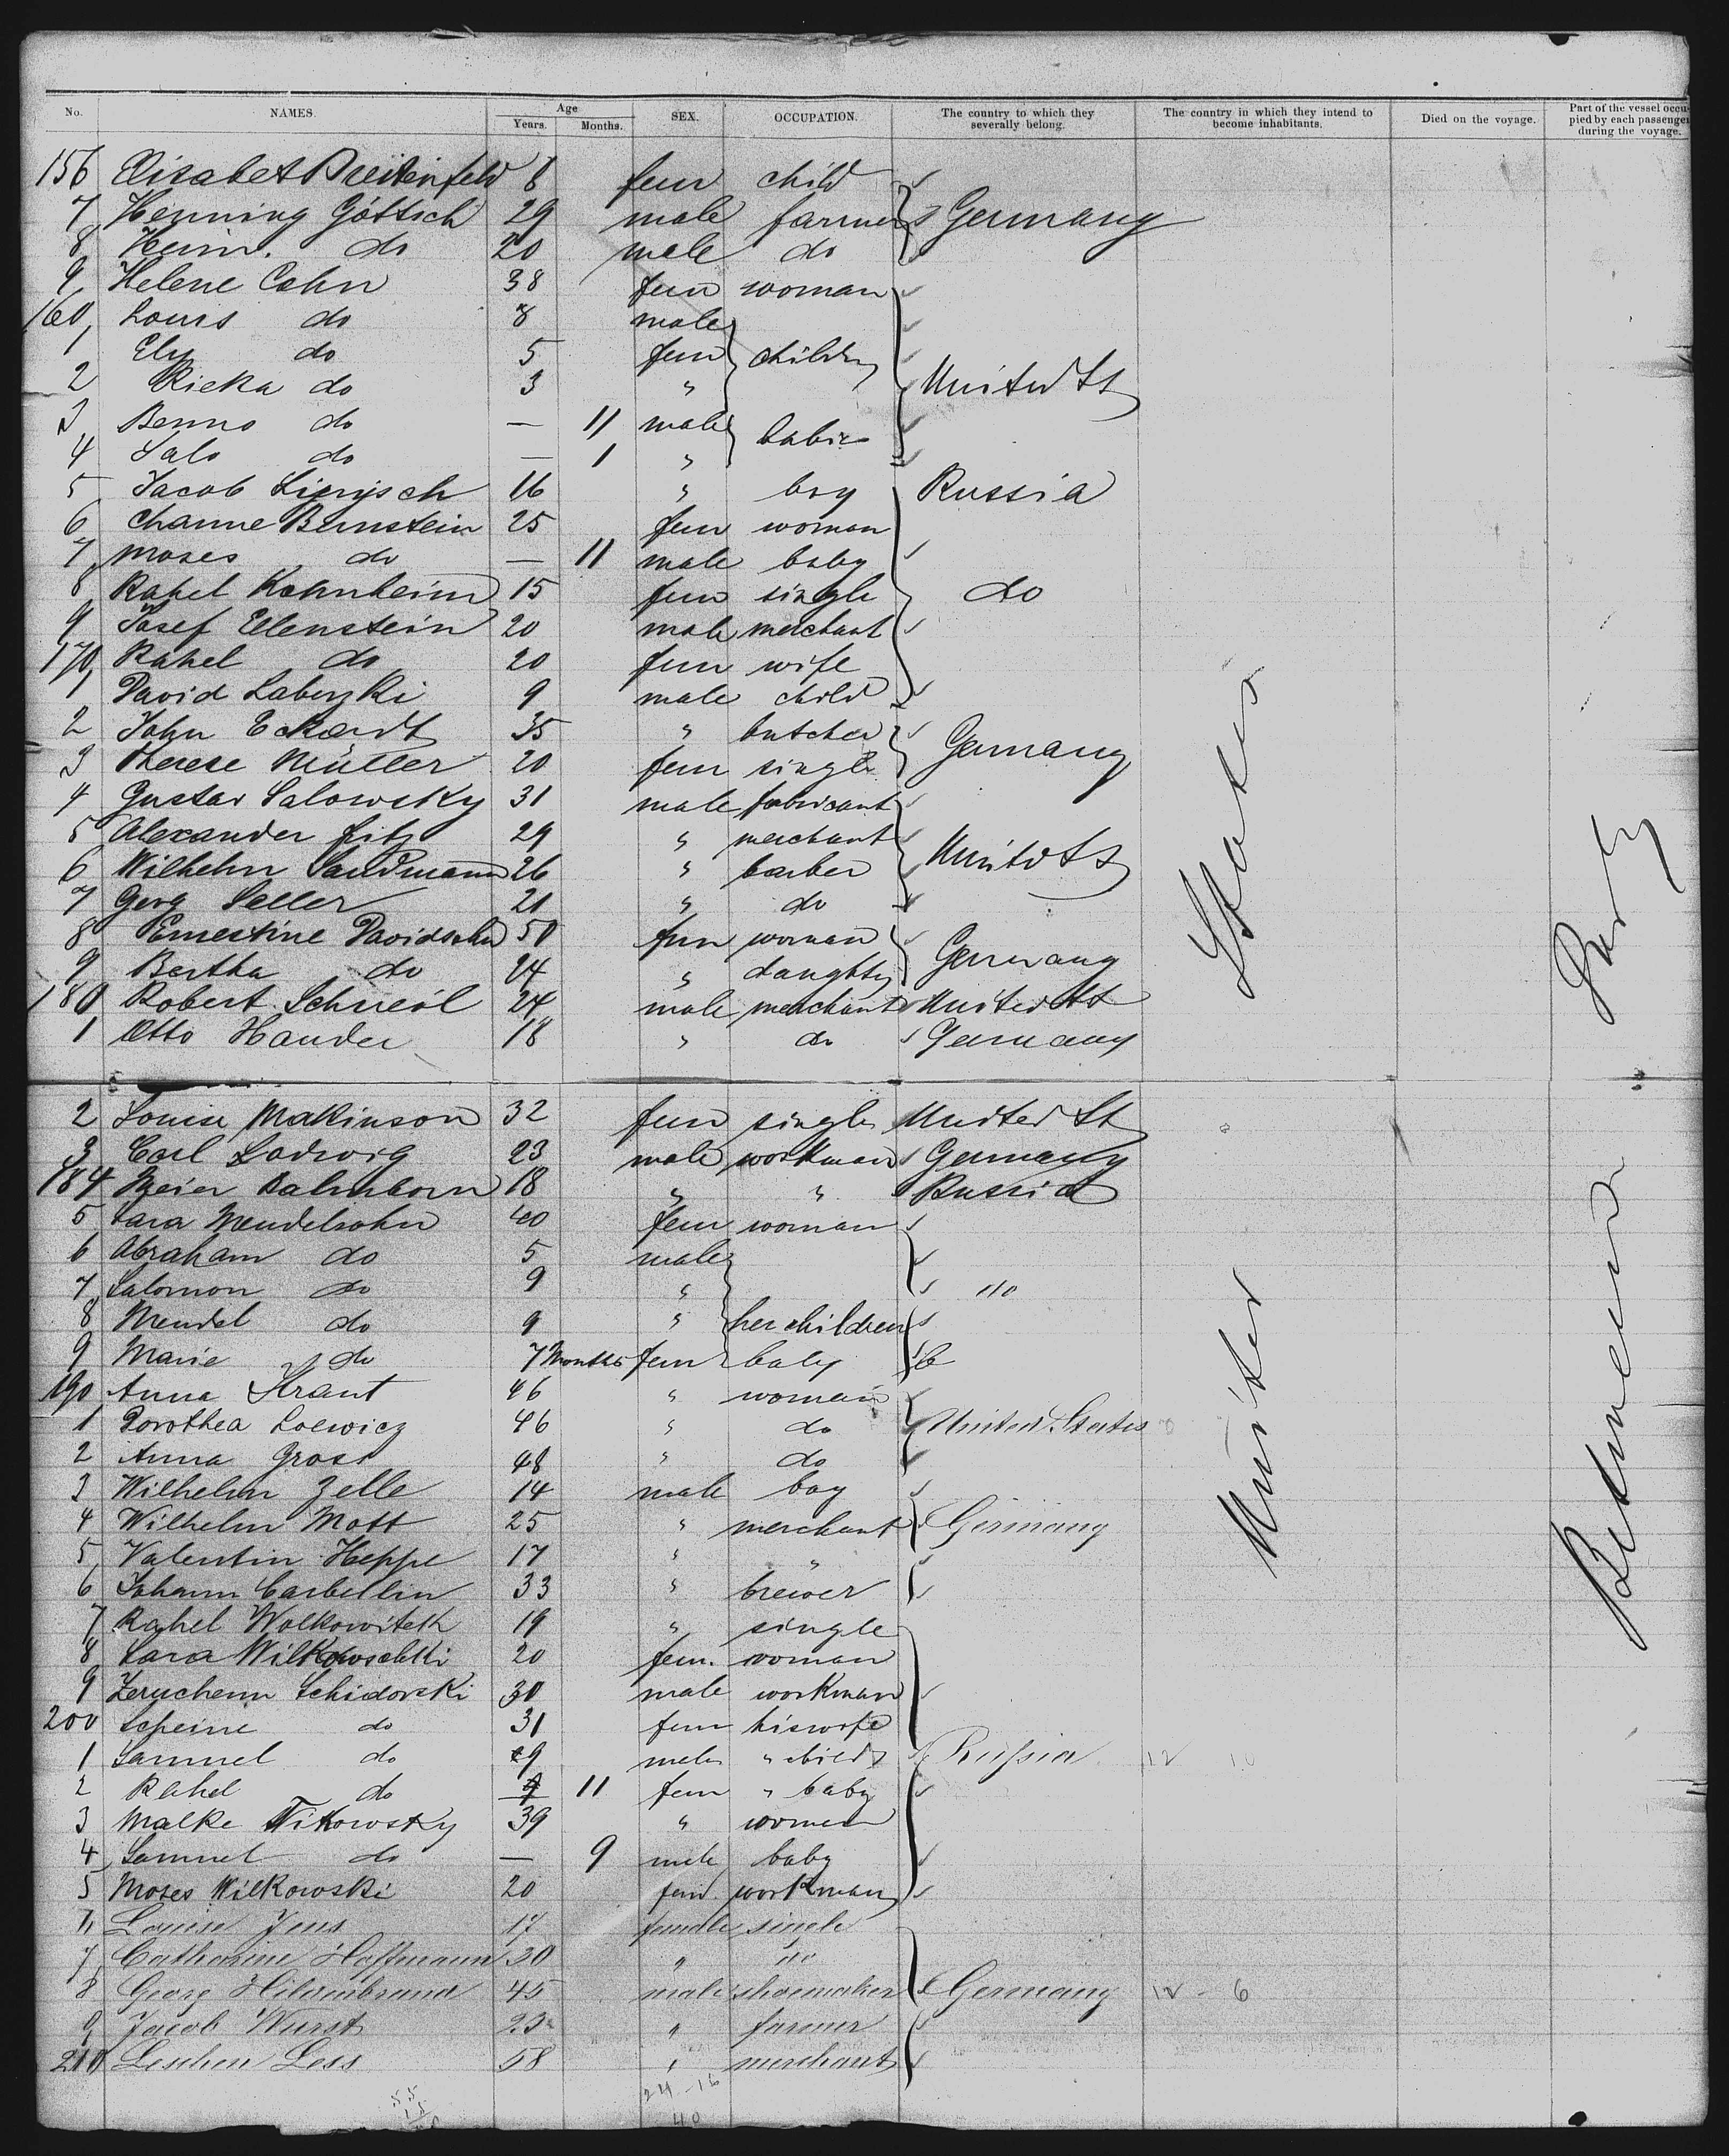 No. NAMES. Age Years. Months. SEX. OCCUPATION. The country to which they severally belong. The country in which they intend to become inhabitants. Died on the voyage. Part of the vessel occupied by each passenger during the voyage.
156 Elisabet Breitenfeld 8 fem child
7 Henning Göttsch 29 male farmer Germany
8 Heinr. do 20 male do
9 Helene Cohn 38 fem woman
160 Louis do 8 male
1 Ely do 5 fem children
2 Rieka do 3 " United St
3 Benno do — 11 male babies
4 Salo do — 1 "
5 Jacob 16 " boy Russia
6 Channe Bernstein 25 fem woman
7 Moses do — 11 male baby
8 Rahel Kohnheim 15 fem single do
9 Josef Ellenstein 20 male merchant
170 Rahel do 20 fem wife
1 David Labezki 9 male child
2 John Eckardt 35 " butcher
3 Therese Müller 20 fem single Germany
4 Gustav Salowsky 31 male fabricant
5 Alexander 29 " merchant
6 Wilhelm Sandmann 26 " barber United St
7 Georg Seller 21 " do
8 Ernestine Davidsohn 50 fem woman
9 Bertha do 24 " daughter Germany
180 Robert 24 male merchant United St
1 Otto Hander 18 " do Germany
2 Louise Makinson 32 fem single United St
3 Carl Ladwig 23 male workman Germany
184 Meier Dalnborn 18 " " Russia
5 Sara Mendelsohn 40 fem woman
6 Abraham do 5 male
7 Salomon do 9 " do
8 Mendel do 9 " her children
9 Marie do 7 Months fem baby
190 Anna Krant 46 " woman
1 Dorothea Loewicz 46 " do United States
2 Anna Gross 48 " do
3 Wilhelm Zelle 14 male boy
4 Wilhelm Mott 25 " merchant Germany
5 Valentin Heppe 17 " "
6 Johann Carbellin 33 " brewer
7 Rahel Wolkowitsh 19 " single
8 Sara 20 fem. woman
9 Schidorski 30 male workman
200 Scheine do 31 fem his wife
1 Samuel do 9 male " child Russia 12 10
2 Rahel do 11 fem " baby
3 Malke Witkowsky 39 " woman
4 Samuel do — 9 male baby
5 Moses Wilkowski 20 fem workman
Louise Jens 17 female single
7 Catharine Hoffmann 30 " do
8 Georg Hilsenbrand 45 male shoemaker Germany 12 - 6
9 Jacob Wurst 23 " farmer
210 Leschen Less 58 " merchant
24 - 16
40
United States
Between Deck